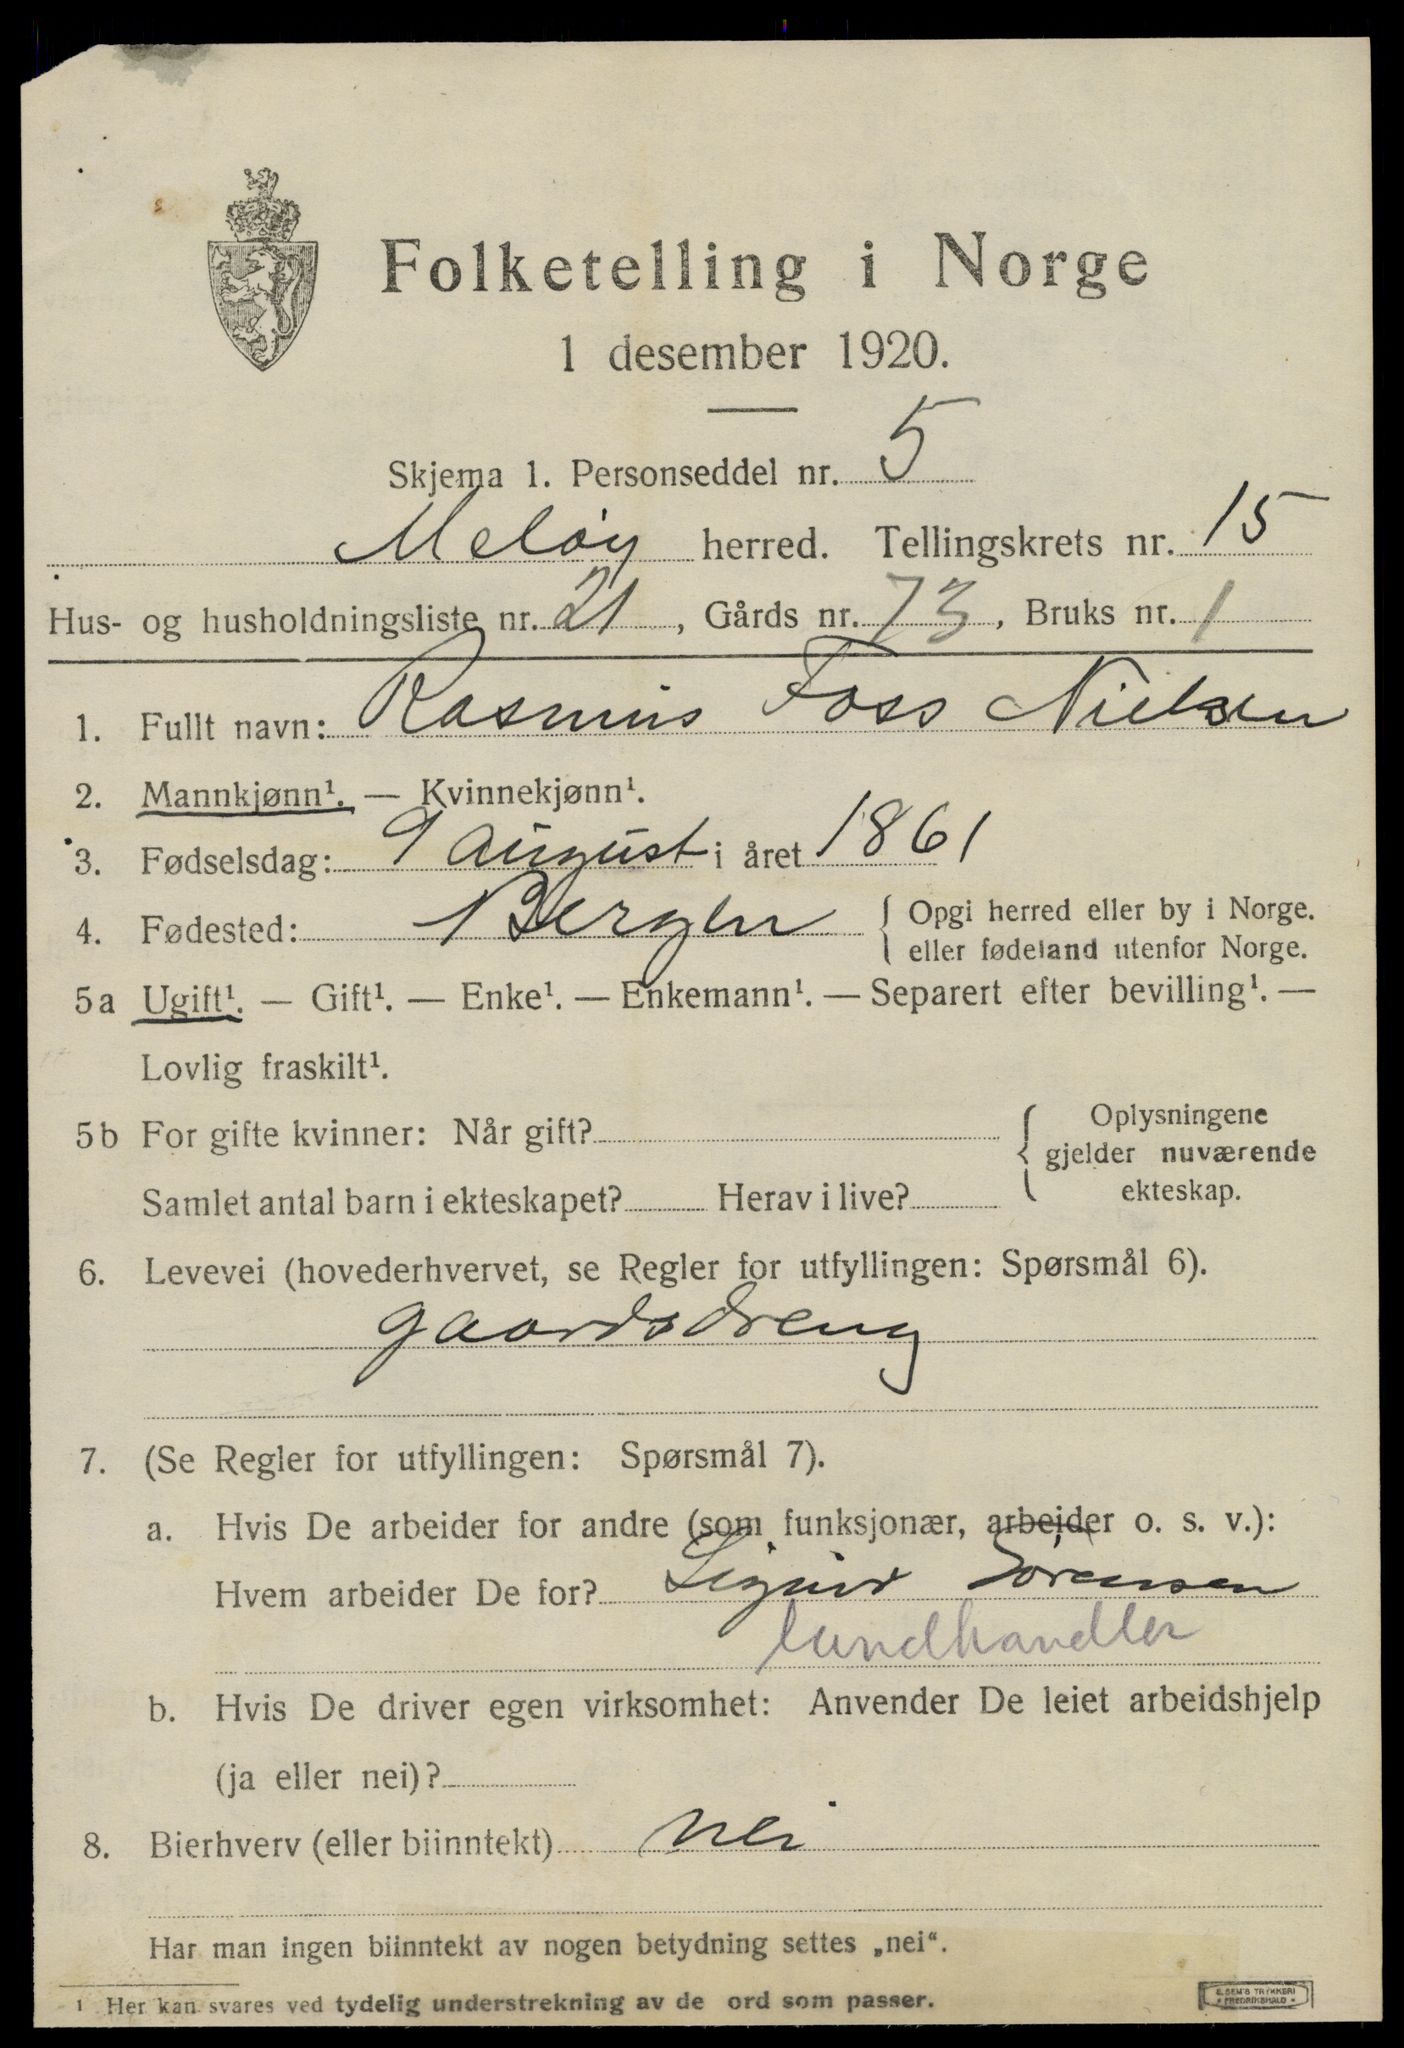 Folketelling i Norge
1 desember 1920.
Skjema 1. Personseddel nr. 5
Meløy herred. Tellingskrets nr. 15
Hus- og husholdningsliste nr. 21, Gårds nr. 73, Bruks nr. 1
1. Fullt navn: Rasmus Foss Nielsen
2. Mannkjønn¹. — Kvinnekjønn¹.
3. Fødselsdag: 9 august i året 1861
4. Fødested: Bergen { Opgi herred eller by i Norge.
eller fødeland utenfor Norge.
5a Ugift¹. — Gift¹. — Enke¹. — Enkemann¹. — Separert efter bevilling¹. —
Lovlig fraskilt¹.
5b For gifte kvinner: Når gift? { Oplysningene
gjelder nuværende
ekteskap.
Samlet antal barn i ekteskapet? Herav i live?
6. Levevei (hovederhvervet, se Regler for utfyllingen: Spørsmål 6).
gaardsdreng
7. (Se Regler for utfyllingen: Spørsmål 7).
a. Hvis De arbeider for andre (som funksjonær, arbeider o. s. v.):
Hvem arbeider De for? Sigurd Sörensen
landhandler
b. Hvis De driver egen virksomhet: Anvender De leiet arbeidshjelp
(ja eller nei)?
8. Bierhverv (eller biinntekt) nei
Har man ingen biinntekt av nogen betydning settes „nei“.
¹ Her kan svares ved tydelig understrekning av de ord som passer.
TRYKKERI
FREDRIKSHALD